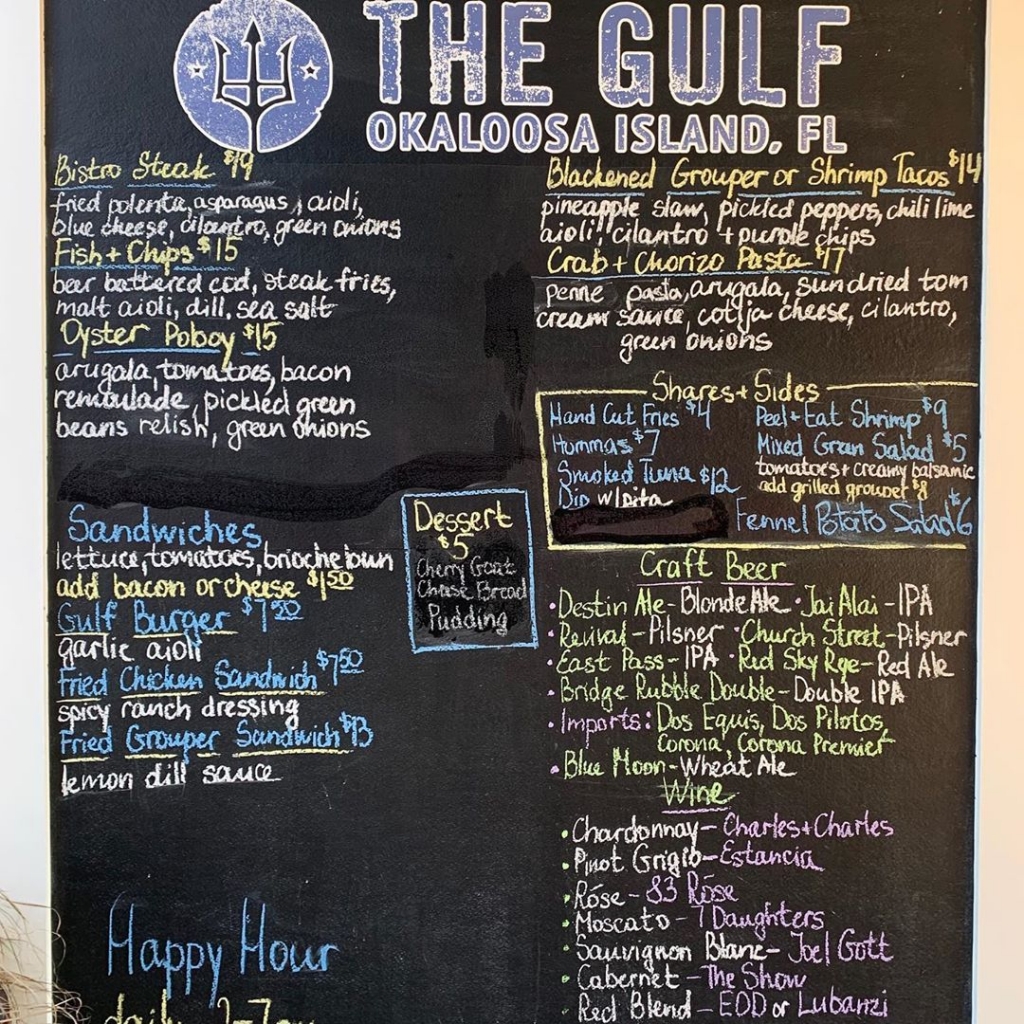 THE GULF
OKALOOSA ISLAND, FL
Bistro Steak $19
fried polenta, asparagus, aioli,
blue cheese, cilantro, green onions
Fish + Chips $15
beer battered cod, steak fries,
malt aioli, dill, sea salt
Oyster Poboy $15
arugala, tomatoes, bacon
remoulade, pickled green
beans relish, green onions
Sandwiches
lettuce, tomatoes, brioche bun
add bacon or cheese $1.50
Gulf Burger $7.20
garlic aioli
Fried Chicken Sandwich $7.50
spicy ranch dressing
Fried Grouper Sandwich $13
lemon dill sauce
Happy Hour
daily
Dessert
$5
Cherry Goat
Cheese Bread
Pudding
Blackened Grouper or Shrimp Tacos $14
pineapple slaw, pickled peppers, chili lime
aioli, cilantro + purple chips
Crab + Chorizo Pasta $17
penne pasta, arugala, sundried tom
cream sauce, cotija cheese, cilantro,
green onions
Shares + Sides
Hand Cut Fries $4
Hummas $7
Smoked Tuna $12
Dip w/pita
Peel + Eat Shrimp $9
Mixed Green Salad $5
tomatoes + creamy balsamic
add grilled grouper $8
Fennel Potato Salad $6
Craft Beer
• Destin Ale - Blonde Ale • Jai Alai - IPA
• Revival - Pilsner • Church Street - Pilsner
• East Pass - IPA • Red Sky Rye - Red Ale
• Bridge Rubble Double - Double IPA
• Imports: Dos Equis, Dos Pilotos,
Corona, Corona Premier
• Blue Moon - Wheat Ale
Wine
• Chardonnay - Charles + Charles
• Pinot Grigio - Estancia
• Róse - 83 Róse
• Moscato - 7 Daughters
• Sauvignon Blanc - Joel Gott
• Cabernet - The Show
• Red Blend - EOD or Lubanzi